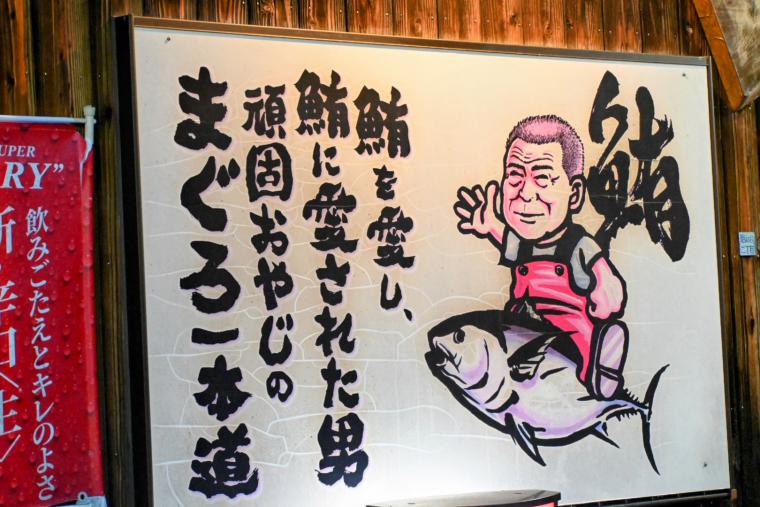 鮪
鮪を愛し、
鮪に愛された男
頑固おやじの
まぐろ一本道
SUPER
RY”
飲みごたえとキレのよさ
新・辛口〈生〉